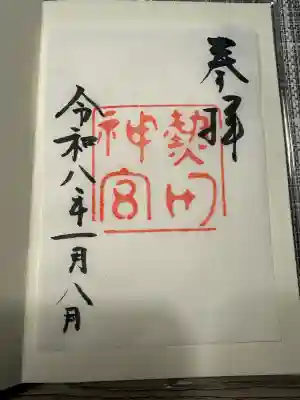 奉拝
熱田
神宮
令和八年一月八日